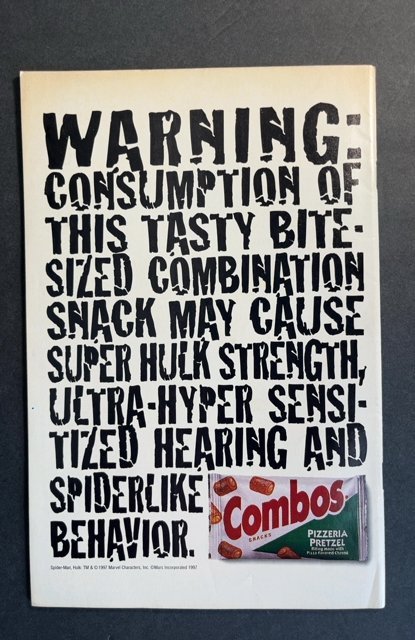 WARNING:
CONSUMPTION OF
THIS TASTY BITE-
SIZED COMBINATION
SNACK MAY CAUSE
SUPER HULK STRENGTH,
ULTRA-HYPER SENSI-
TIZED HEARING AND
SPIDERLIKE
BEHAVIOR.
Combos
SNACKS
PIZZERIA
PRETZEL
Filling made with
Pizza Flavored Cheese
Spider-Man, Hulk: TM & © 1997 Marvel Characters, Inc. ©Mars Incorporated 1997